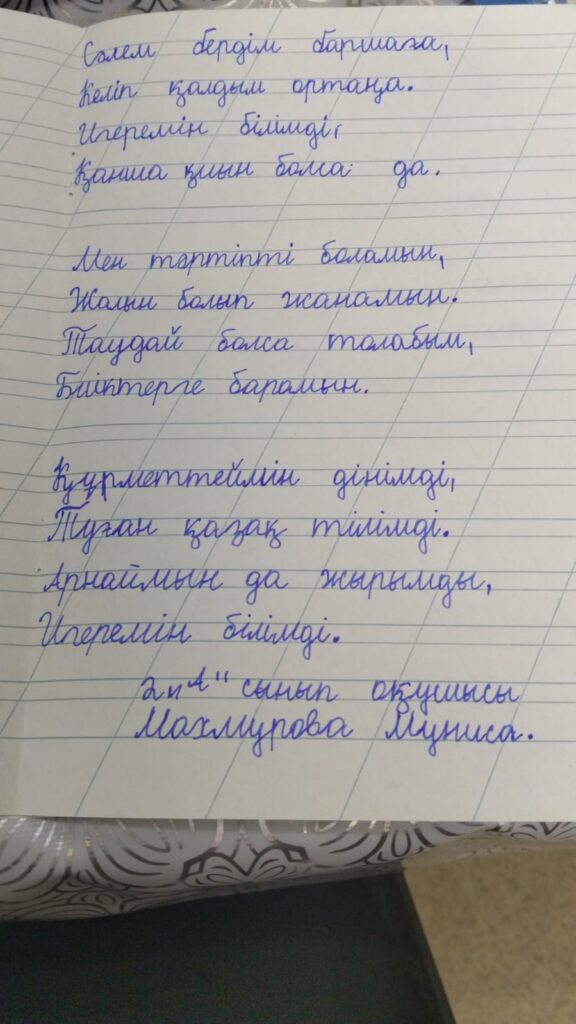 Сәлем бердім баршаға,
Келіп қалдым ортаңа.
Игеремін білімді,
Қанша қиын болса да.
Мен тәртіпті боламын,
Жалын болып жанамын.
Таудай болса талабым,
Биіктерге барамын.
Құрметтеймін дінімді,
Туған қазақ тілімді.
Арнаймын да жырымды,
Игеремін білімді.
2 "А" сынып оқушысы
Махмурова Муниса.